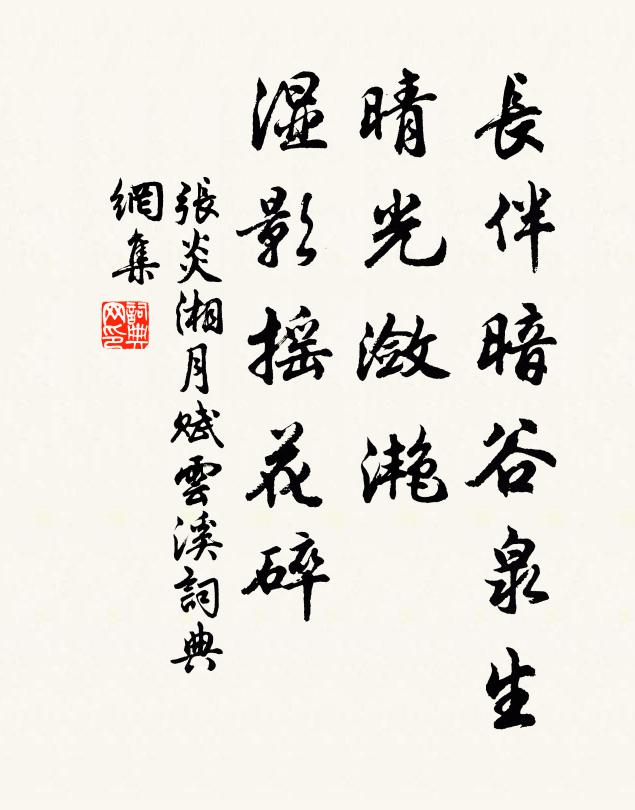 長伴暗谷泉生
晴光瀲灧
湿影摇花碎
張炎湘月賦雲溪詞典
網集
詞典
网印